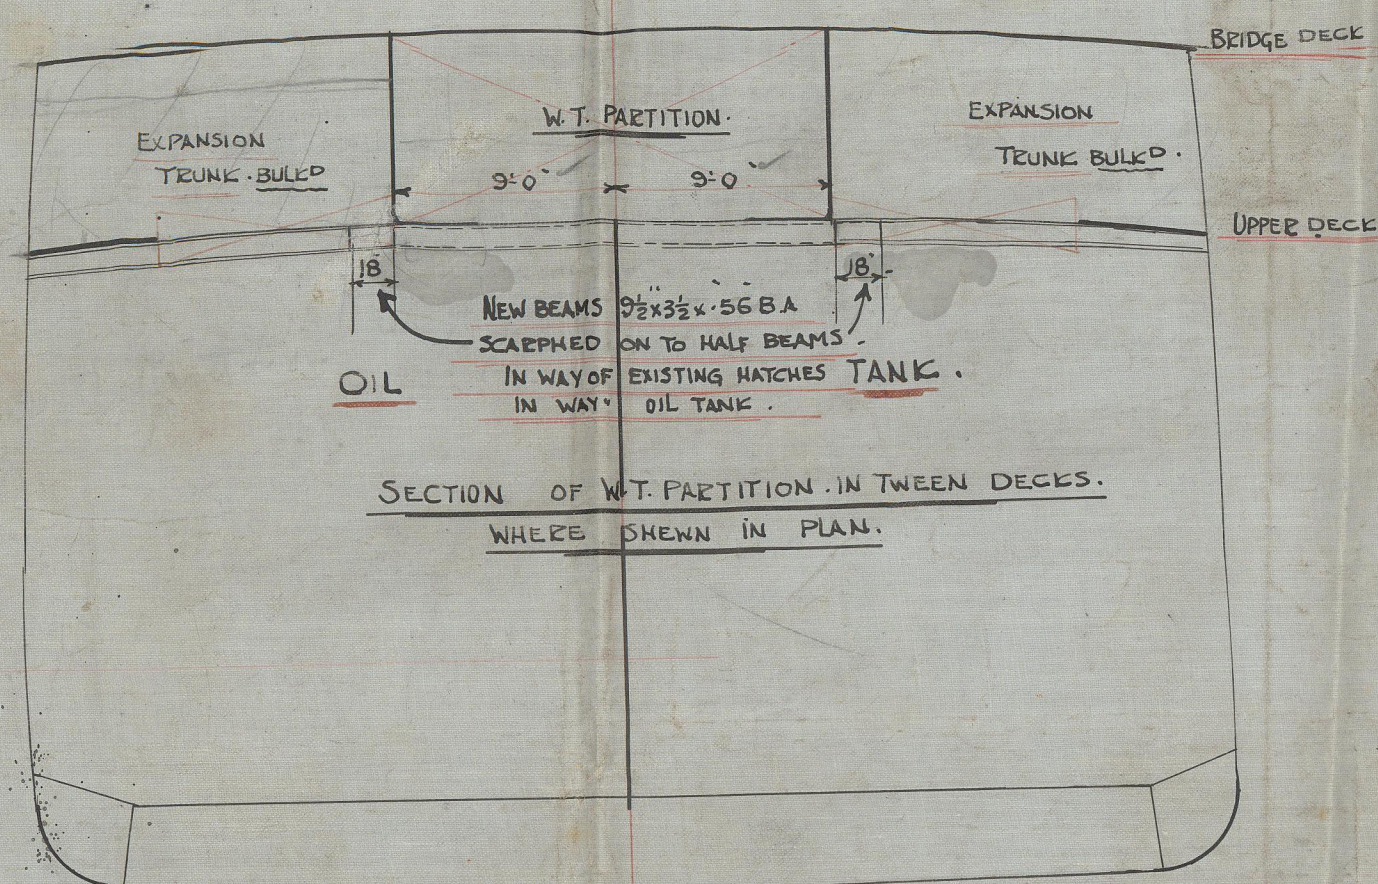 BRIDGE DECK
W.T. PARTITION.
EXPANSION
TRUNK. BULKD
EXPANSION
TRUNK BULKD.
9'-0"
9'-0"
UPPER DECK
18"
18"
NEW BEAMS 9½"x3½"x.56 B.A
SCARPHED ON TO HALF BEAMS.
IN WAY OF EXISTING HATCHES
IN WAY" OIL TANK.
OIL TANK.
SECTION OF W.T. PARTITION. IN TWEEN DECKS.
WHERE SHEWN IN PLAN.